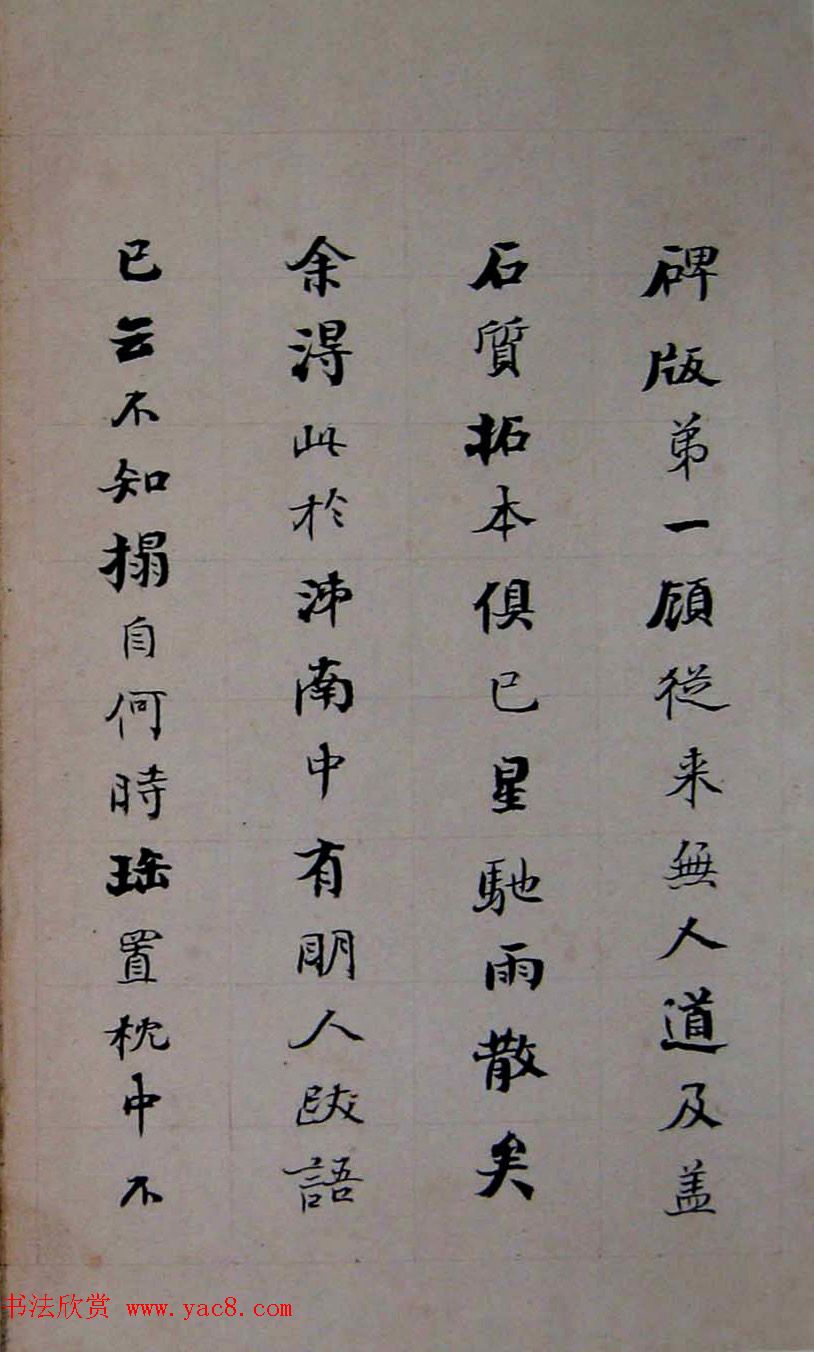 碑版弟一顧從来無人道及盖
石質拓本俱已星馳雨散矣
余得此於泲南中有明人跋語
已云不知搨自何時珤置枕中不
书法欣赏 www.yac8.com